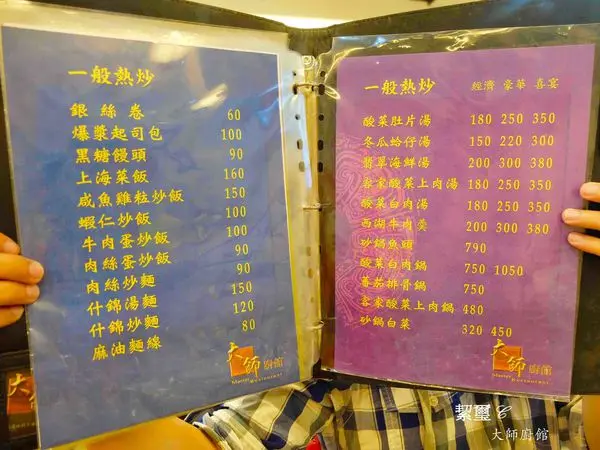 一般熱炒
銀絲卷 60
爆漿起司包 100
黑糖饅頭 90
上海菜飯 160
咸魚雞粒炒飯 150
蝦仁炒飯 100
牛肉蛋炒飯 100
肉絲蛋炒飯 90
肉絲炒麵 90
什錦湯麵 150
什錦炒麵 120
麻油麵線 80
大師廚館
Master Restaurant
一般熱炒 經濟 豪華 喜宴
酸菜肚片湯 180 250 350
冬瓜蛤仔湯 150 220 300
翡翠海鮮湯 200 300 380
客家酸菜上肉湯 180 250 350
酸菜白肉湯 180 250 350
西湖牛肉羹 200 300 380
砂鍋魚頭 790
酸菜白肉鍋 750 1050
蕃茄排骨鍋 750
客家酸菜上肉鍋 480
砂鍋白菜 320 450
大師廚館
Master Restaurant
絜璽C
大師廚館